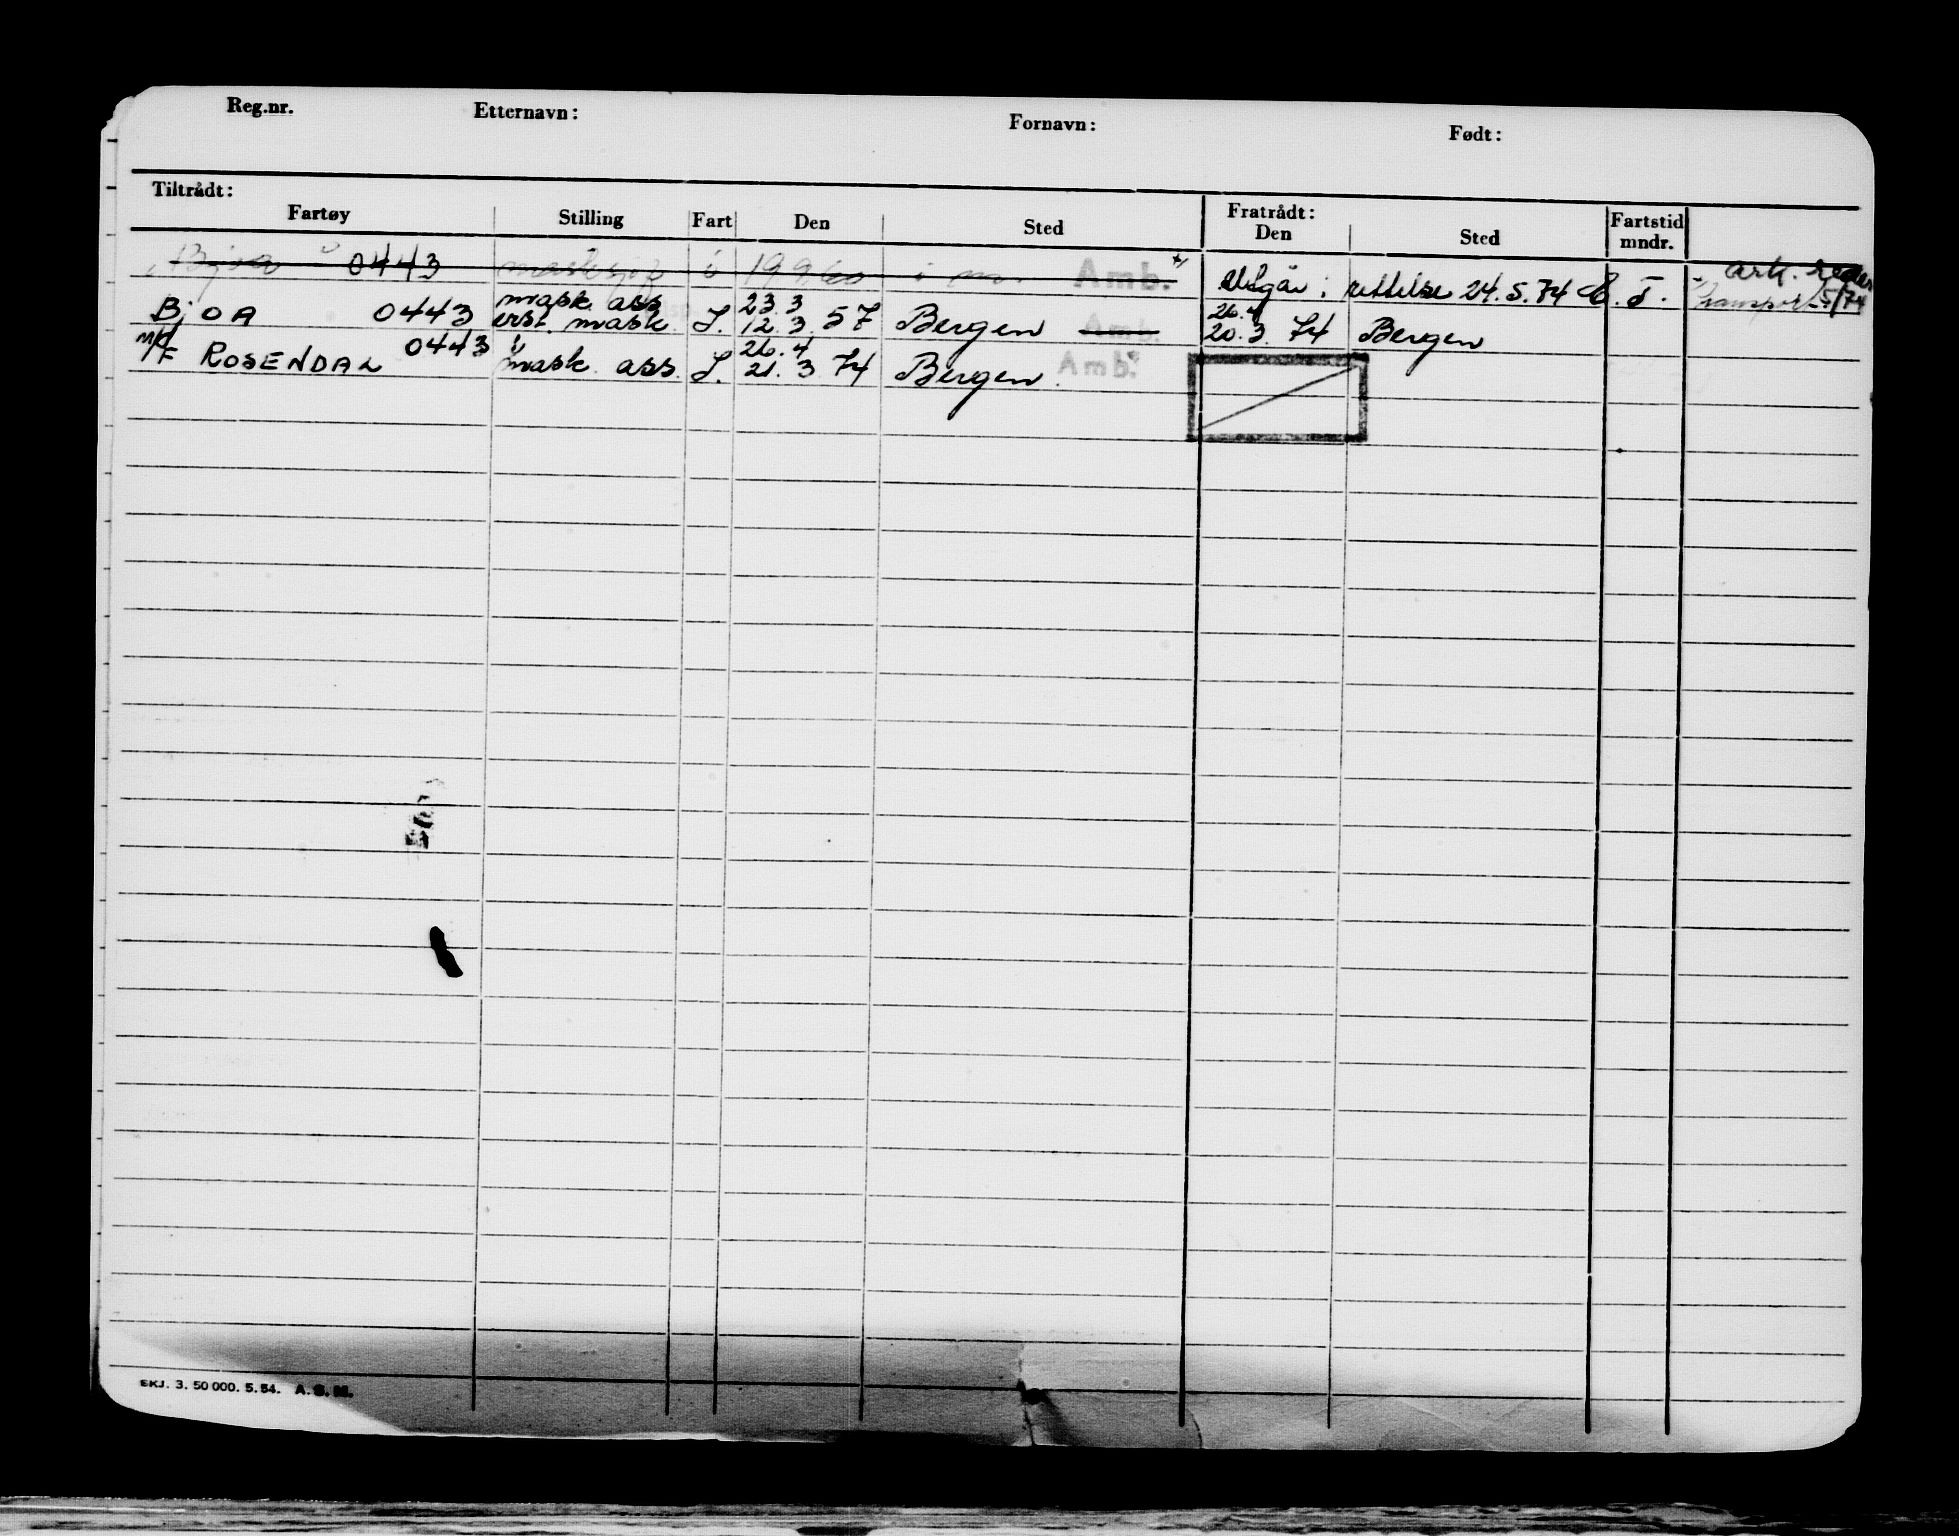 Reg.nr. Etternavn: Fornavn: Født:
Tiltrådt: Fratrådt:
Fartøy Stilling Fart Den Sted Den Sted Fartstid mndr.
Bjoa 0443 i Amb. Utgår: rettelse 24.5.74 E.T.
ark. reder
5/74
mask. ass 23.3 26.4
BjOA 0443 erst. mask. I. 12.3.57 Bergen Amb. 20.3.74 Bergen
M/F ROSENDAL 0443 " 26.4
mask. ass. I. 21.3.74 Bergen. Amb.
EKJ. 3. 50 000. 5. 54. A. S. M.